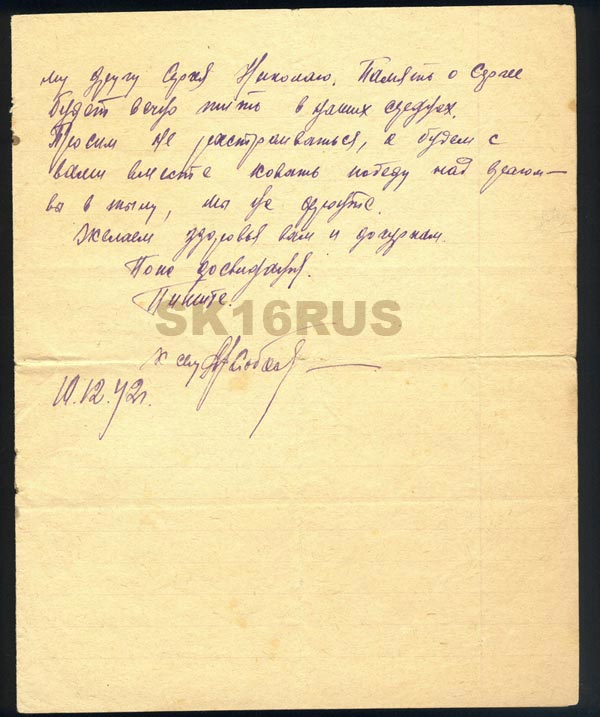 му другу Сергея Николаю. Память о Сергее
будет вечно жить в наших сердцах.
Просим не расстраиваться, а будем с
вами вместе ковать победу над врагом —
вы в тылу, мы на фронте.
Желаем здоровья вам и дочуркам.
Пока досвидания.
Пишите.
SK16RUS
К сему
10.12.42г.